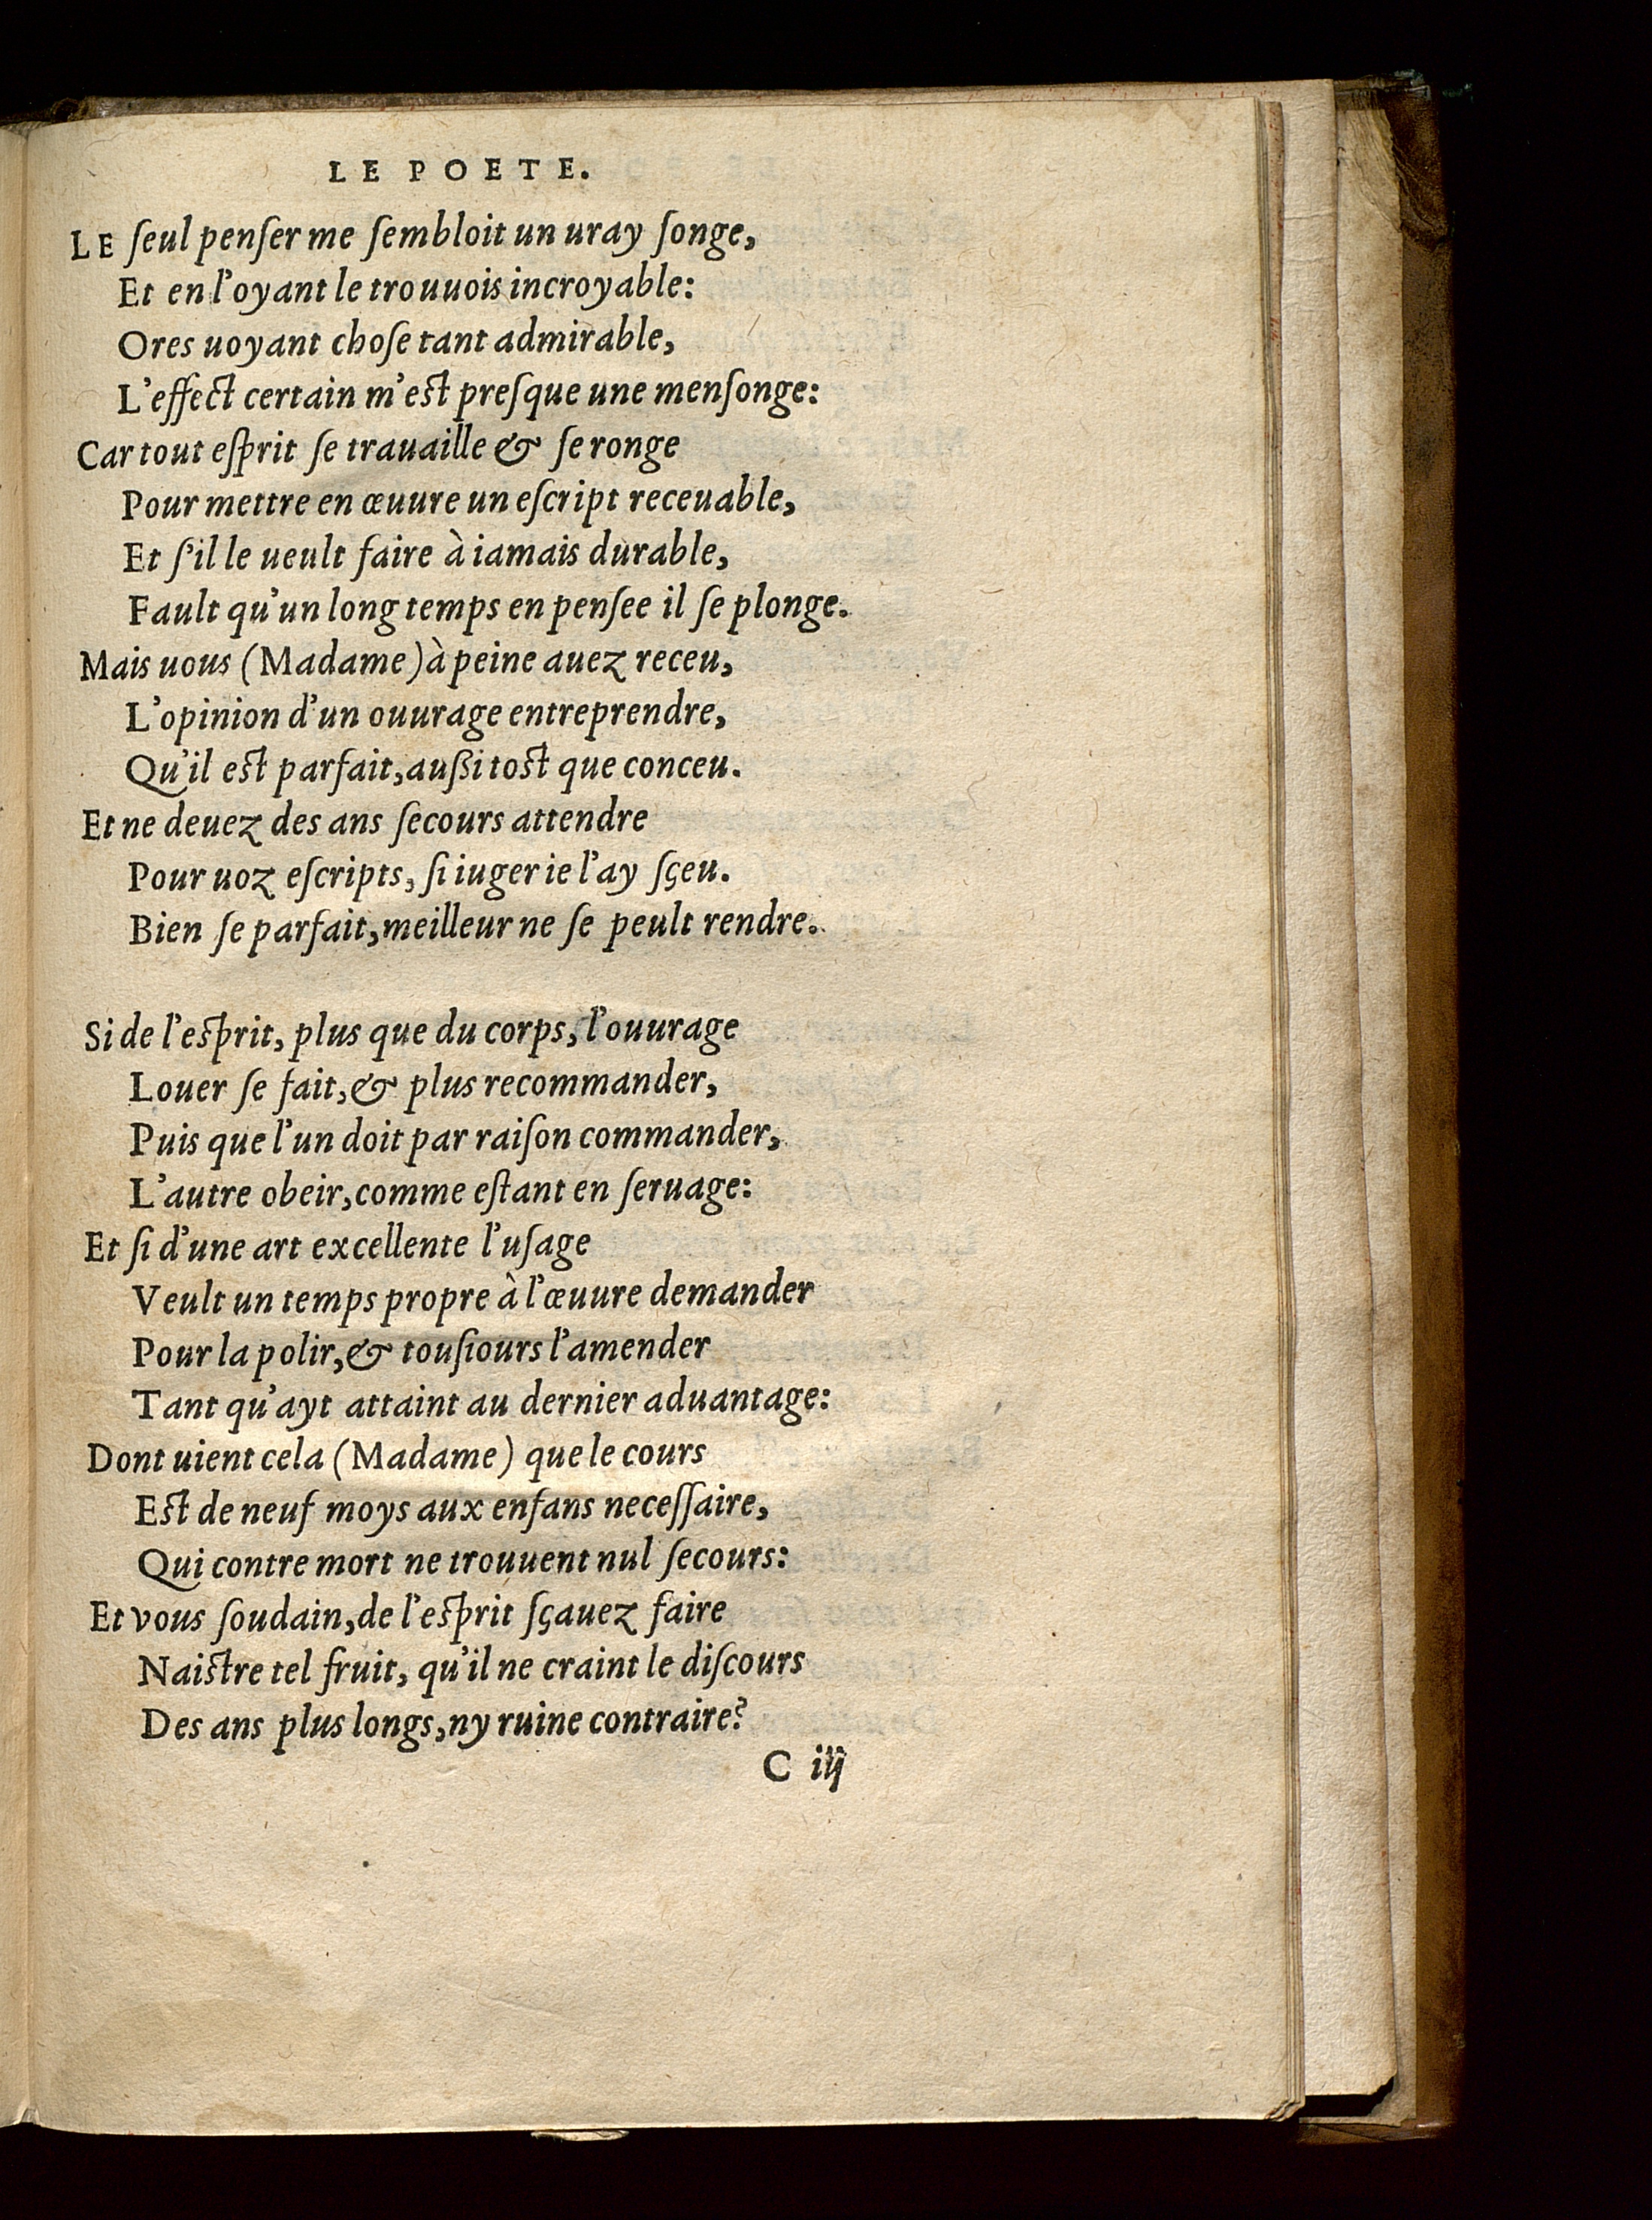 LE POETE.
LE ſeul penſer me ſembloit un uray ſonge,
Et en l'oyant le trouuois incroyable:
Ores uoyant choſe tant admirable,
L'effect certain m'eſt preſque une menſonge:
Car tout eſprit ſe trauaille & ſe ronge
Pour mettre en œuure un eſcript receuable,
Et ſ'il le ueult faire à iamais durable,
Fault qu'un long temps en penſee il ſe plonge.
Mais uous (Madame) à peine auez receu,
L'opinion d'un ouurage entreprendre,
Qu'il eſt parfait, außi toſt que conceu.
Et ne deuez des ans ſecours attendre
Pour uoz eſcripts, ſi iuger ie l'ay ſçeu.
Bien ſe parfait, meilleur ne ſe peult rendre.
Si de l'eſprit, plus que du corps, l'ouurage
Louer ſe fait, & plus recommander,
Puis que l'un doit par raiſon commander,
L'autre obeir, comme eſtant en ſeruage:
Et ſi d'une art excellente l'uſage
Veult un temps propre à l'œuure demander
Pour la polir, & touſiours l'amender
Tant qu'ayt attaint au dernier aduantage:
Dont uient cela (Madame) que le cours
Eſt de neuf moys aux enfans neceſſaire,
Qui contre mort ne trouuent nul ſecours:
Et vous ſoudain, de l'eſprit ſçauez faire
Naiſtre tel fruit, qu'il ne craint le diſcours
Des ans plus longs, ny ruine contraire?
C iij